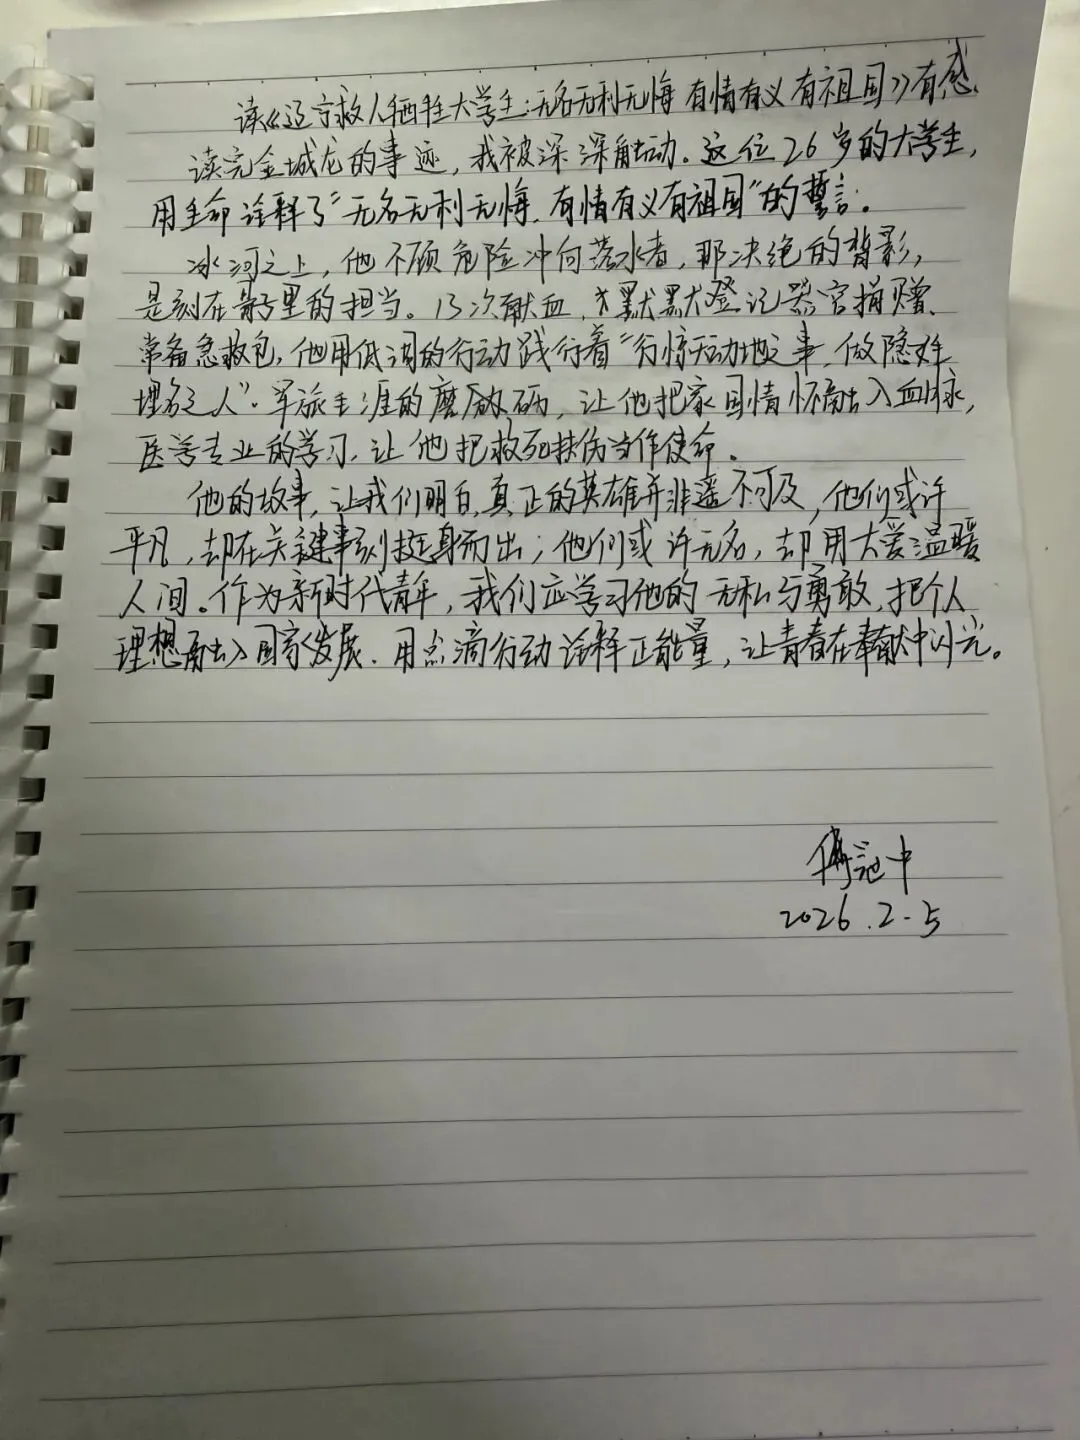 读《辽宁救人牺牲大学生:无名无利无悔 有情有义有祖国》有感
读完金城龙的事迹,我被深深触动。这位26岁的大学生,
用生命诠释了“无名无利无悔,有情有义有祖国”的誓言.
冰河之上,他不顾危险冲向落水者,那决绝的背影,
是刻在骨子里的担当。13次献血,默默登记器官捐赠、
常备急救包,他用低调的行动践行着“行惊天动地之事,做隐姓
埋名之人”.军旅生涯的磨砺,让他把家国情怀融入血脉,
医学专业的学习,让他把救死扶伤当作使命.
他的故事,让我们明白,真正的英雄并非遥不可及,他们或许
平凡,却在关键事刻挺身而出;他们或许无名,却用大爱温暖
人间。作为新时代青年,我们应学习他的无私与勇敢,把个人
理想融入国家发展.用点滴行动诠释正能量,让青春在奉献中闪光。
傅冠中
2026.2.5